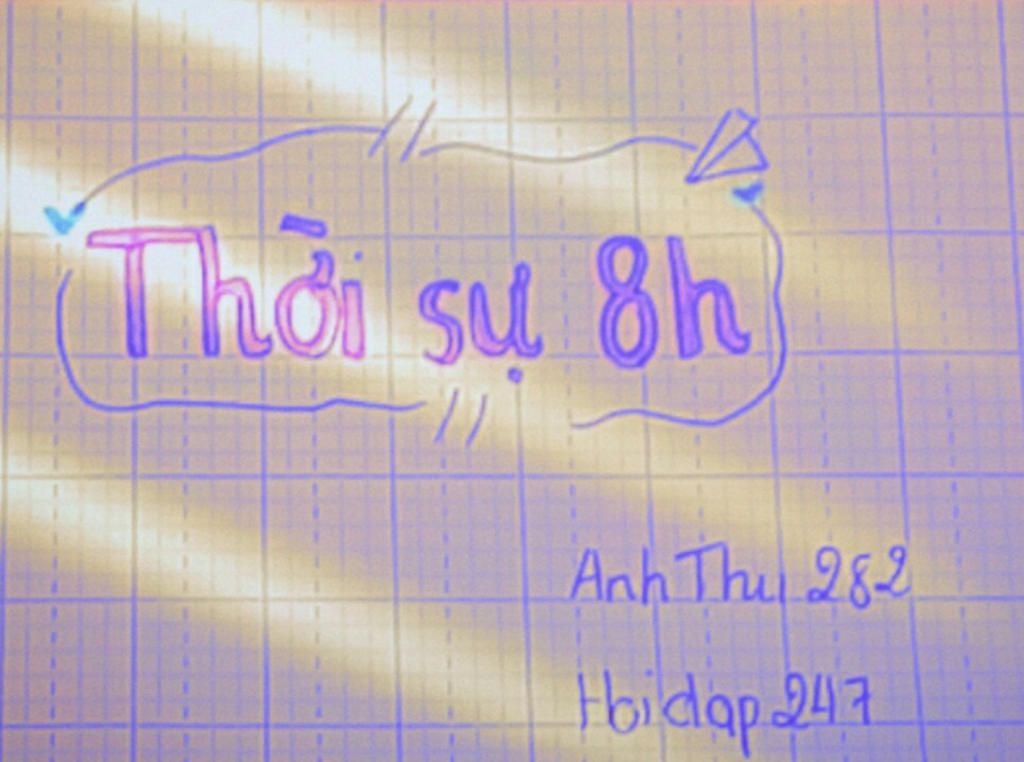 Thời sự 8h
AnhThu 282
Hoidap 247